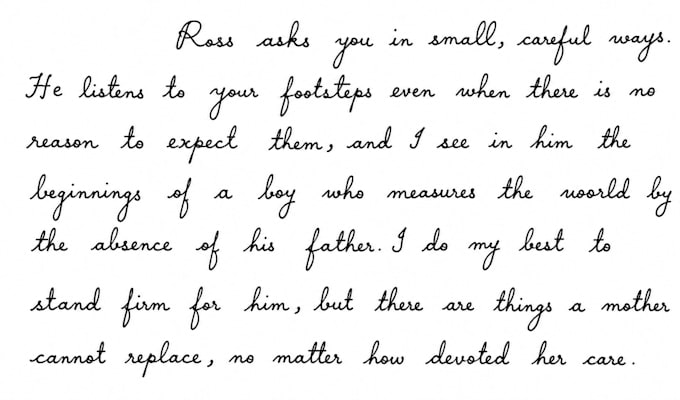 Ross asks you in small, careful ways.
He listens to your footsteps even when there is no
reason to expect them, and I see in him the
beginnings of a boy who measures the woorld by
the absence of his father. I do my best to
stand firm for him, but there are things a mother
cannot replace, no matter how devoted her care.